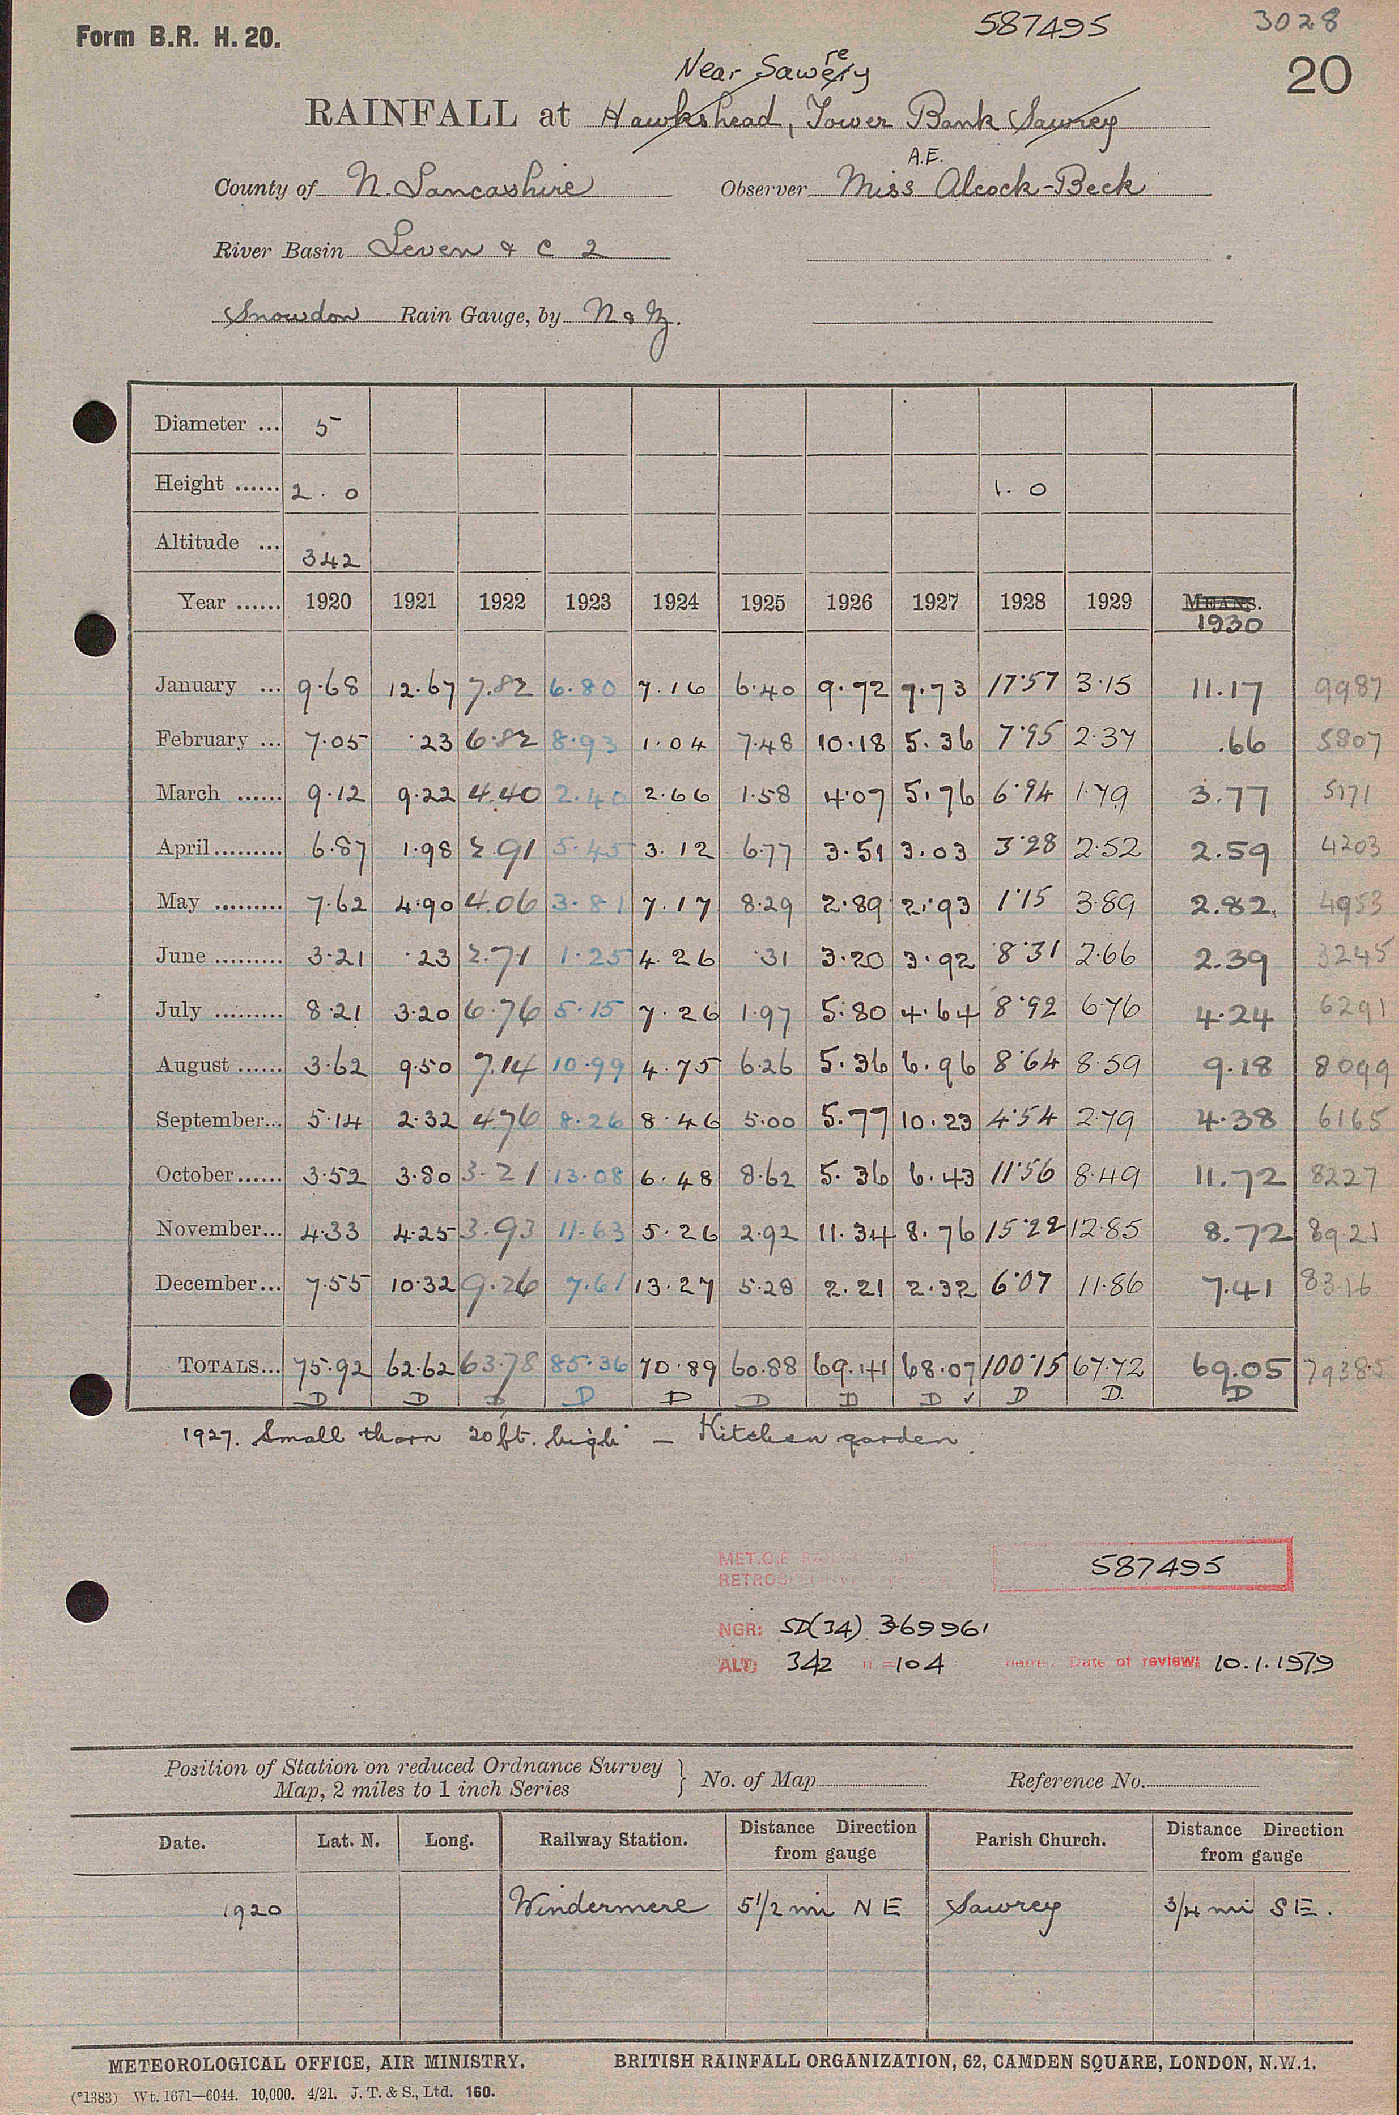 Form B.R. H. 20.
587495
3028
20
Near Sawrey
RAINFALL at Hawkshead, Tower Bank Sawrey
A.E.
County of N. Lancashire Observer Miss Alcock-Beck
River Basin Leven & C 2
Snowdon Rain Gauge, by N & Z.
Diameter ... 5
Height ...... 2. 0 1. 0
Altitude ... 342
Year ...... 1920 1921 1922 1923 1924 1925 1926 1927 1928 1929 MEANS. 1930
January ... 9.68 12.67 7.82 6.80 7.16 6.40 9.72 7.73 17.57 3.15 11.17 9987
February ... 7.05 .23 6.82 8.93 1.04 7.48 10.18 5.36 7.95 2.37 .66 5807
March ...... 9.12 9.22 4.40 2.40 2.66 1.58 4.07 5.76 6.94 1.79 3.77 5171
April ......... 6.87 1.98 2.91 5.45 3.12 6.77 3.51 3.03 3.28 2.52 2.59 4203
May ......... 7.62 4.90 4.06 3.81 7.17 8.29 2.89 2.93 1.15 3.89 2.82 4953
June ......... 3.21 .23 2.71 1.25 4.26 .31 3.20 3.92 8.31 2.66 2.39 3245
July ......... 8.21 3.20 6.76 5.15 7.26 1.97 5.80 4.64 8.92 6.76 4.24 6291
August ...... 3.62 9.50 7.14 10.99 4.75 6.26 5.36 6.96 8.64 8.59 9.18 8099
September... 5.14 2.32 4.76 8.26 8.46 5.00 5.77 10.23 4.54 2.79 4.38 6165
October ...... 3.52 3.80 3.21 13.08 6.48 8.62 5.36 6.43 11.56 8.49 11.72 8227
November... 4.33 4.25 3.93 11.63 5.26 2.92 11.34 8.76 15.22 12.85 8.72 8921
December ... 7.55 10.32 9.26 7.61 13.27 5.28 2.21 2.32 6.07 11.86 7.41 8316
TOTALS... 75.92 62.62 63.78 85.36 70.89 60.88 69.41 68.07 100.15 67.72 69.05 79385
D D D D D D D D ✓ D D. D
1927. Small thorn 20 ft. high – Kitchen garden.
MET.O.8
587495
NGR: SD(34) 369961
ALT: 342 = 104 Date of review: 10.1.1979
Position of Station on reduced Ordnance Survey
Map, 2 miles to 1 inch Series } No. of Map Reference No.
Date. Lat. N. Long. Railway Station. Distance Direction from gauge Parish Church. Distance Direction from gauge
1920 Windermere 5 1/2 mi N E Sawrey 3/4 mi S E.
METEOROLOGICAL OFFICE, AIR MINISTRY. BRITISH RAINFALL ORGANIZATION, 62, CAMDEN SQUARE, LONDON, N.W.1.
(*1383) Wt. 1671—6044. 10,000. 4/21. J. T. & S., Ltd. 160.